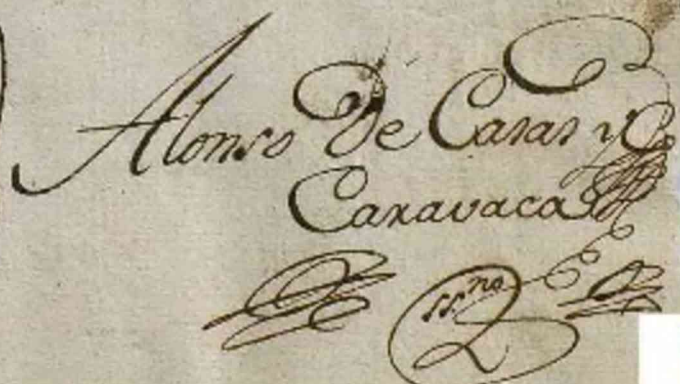 Alonso de Casas y
Caravaca
ss.no